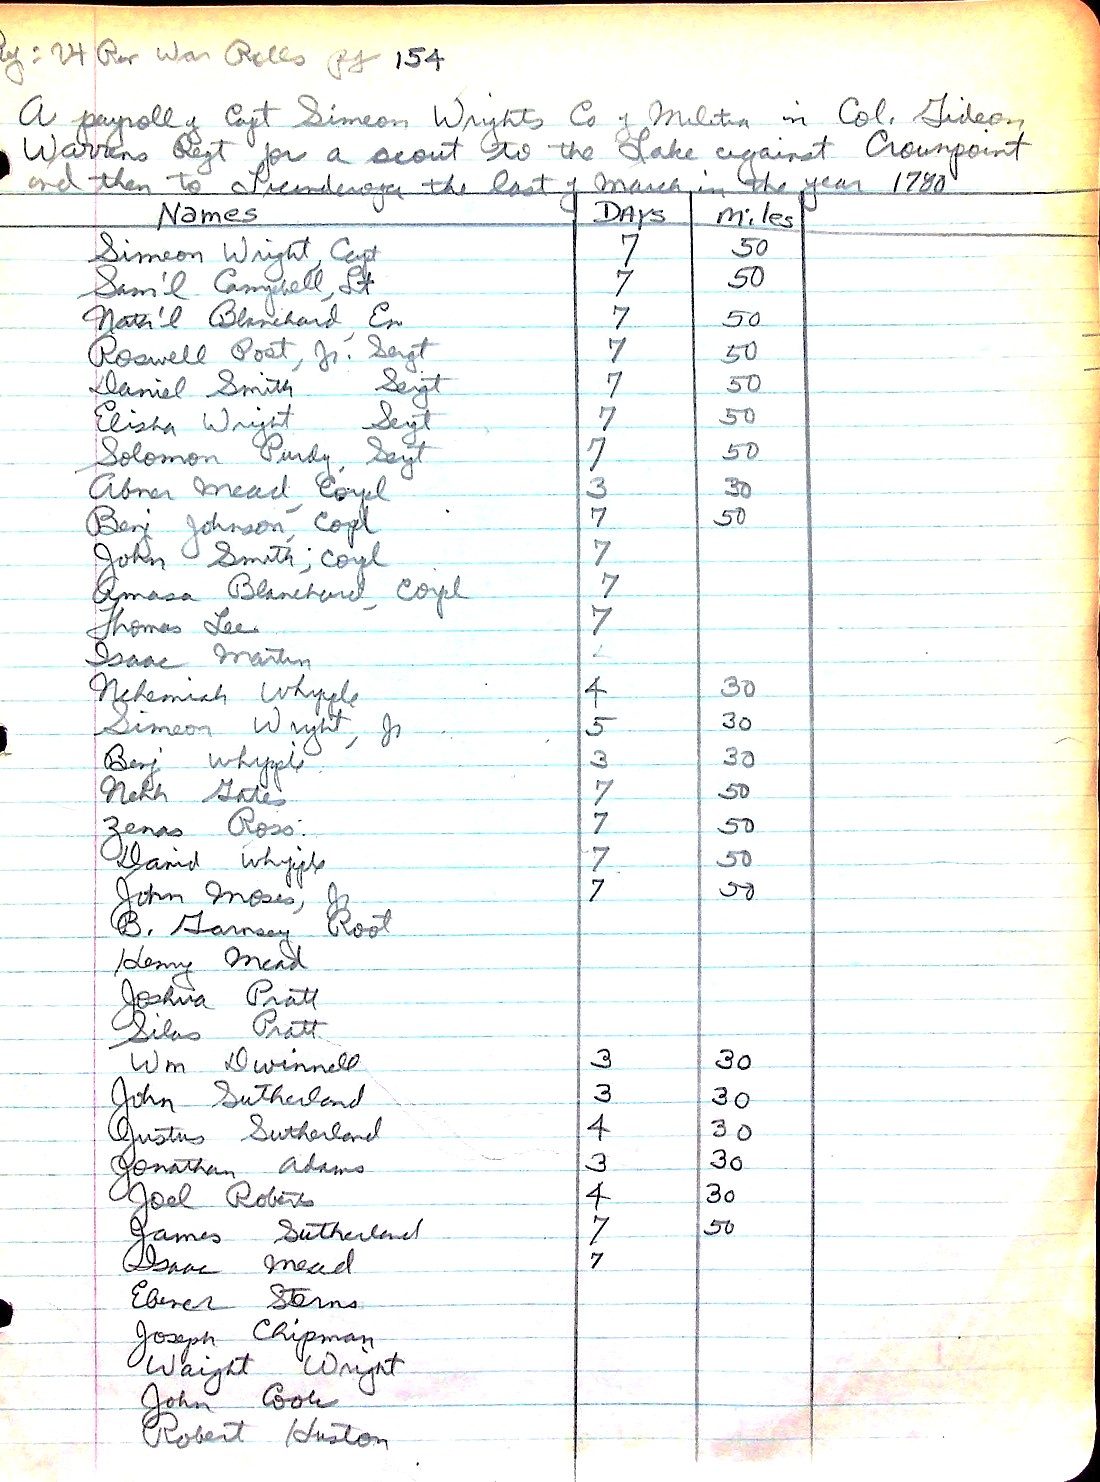 : Vt Rev War Rolls pg 154
A payroll of Capt Simeon Wrights Co of Militia in Col. Gideon
Warrens Regt for a scout to the Lake against Crownpoint
and then to Ticonderoga the last of March in the year 1780
Names DAYS Miles
Simeon Wright, Capt 7 50
Sam'l Campbell, Lt 7 50
Nath'l Blanchard, En 7 50
Roswell Post, Jr. Sergt 7 50
Daniel Smith Sergt 7 50
Elisha Wright Sergt 7 50
Solomon Purdy, Sergt 7 50
Abner Mead, Corpl 3 30
Benj Johnson, Copl 7 50
John Smith, Corpl 7
Amasa Blanchard, Corpl 7
Thomas Lee 7
Isaac Martin
Nehemiah Whypple 4 30
Simeon Wright, Jr 5 30
Benj Whypple 3 30
Nehh Gates 7 50
Zenas Ross 7 50
David Whypple 7 50
John Moses, Jr 7 50
B. Garnsey Root
Henry Mead
Joshua Pratt
Silas Pratt
Wm Dwinnell 3 30
John Sutherland 3 30
Justus Sutherland 4 30
Jonathan Adams 3 30
Joel Roberts 4 30
James Sutherland 7 50
Isaac Mead 7
Ebener Sterns
Joseph Chipman
Waight Wright
John Cook
Robert Huston